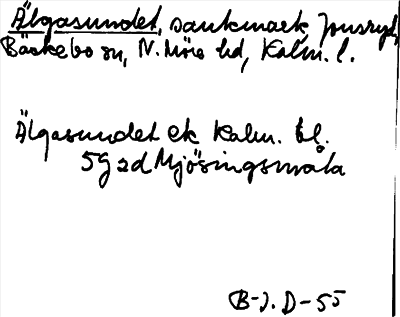 Älgasundet, sankmark, Jonsryd,
Bäckebo sn, N. Möre hd, Kalm. l.
Älgasundet ek Kalm. bl.
5G ad Mjösingsmåla
B-J. D-55